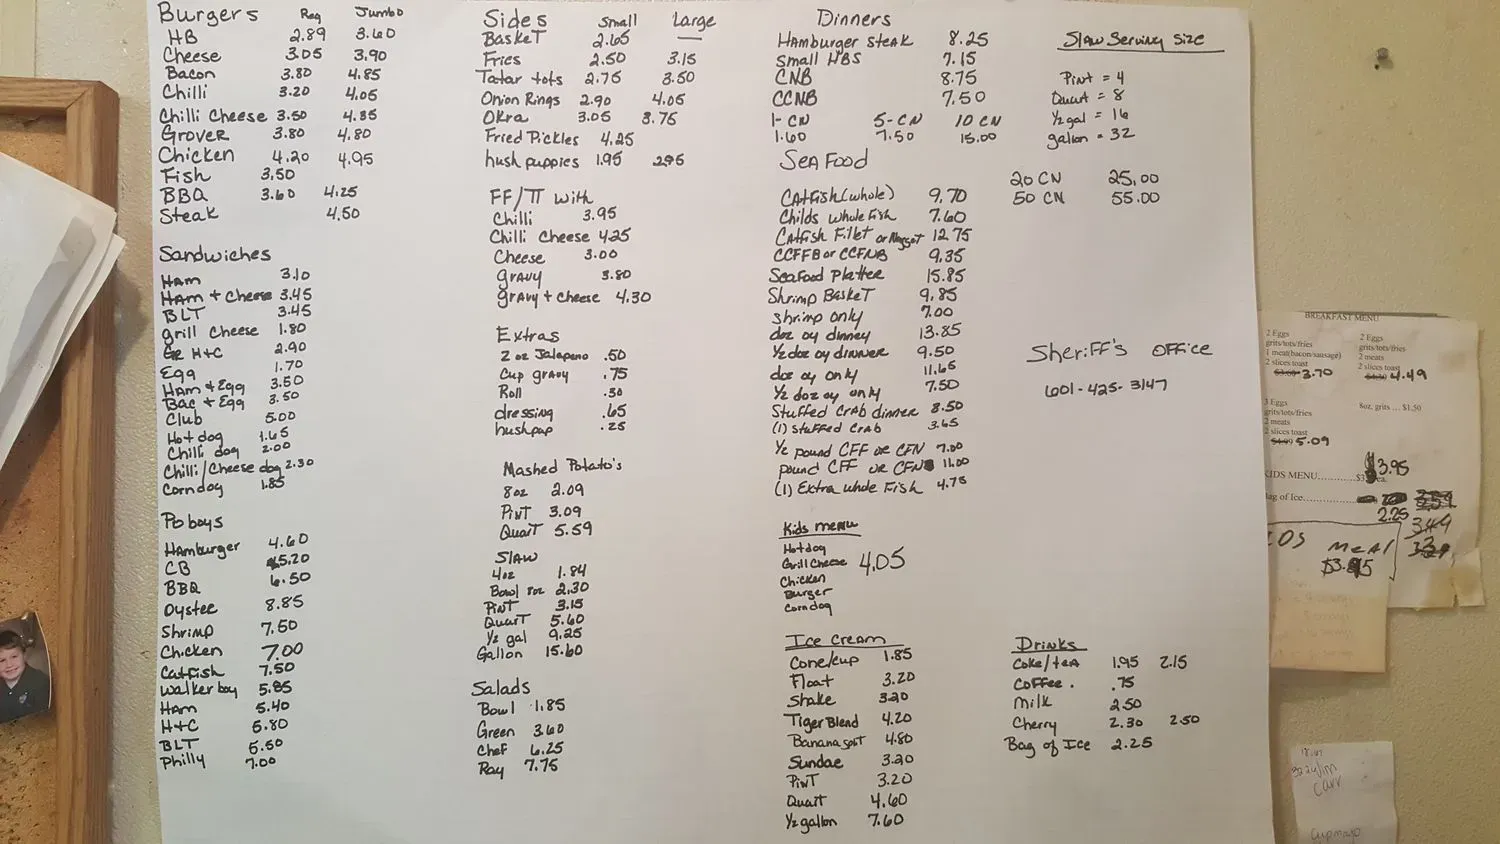 Burgers Reg Jumbo
HB 2.89 3.60
Cheese 3.05 3.90
Bacon 3.80 4.85
Chilli 3.20 4.05
Chilli Cheese 3.50 4.85
Grover 3.80 4.80
Chicken 4.20 4.95
Fish 3.50
BBQ 3.60 4.25
Steak 4.50
Sandwiches
Ham 3.10
Ham + Cheese 3.45
BLT 3.45
grill Cheese 1.80
Gr H+C 2.90
Egg 1.70
Ham + Egg 3.50
Bac + Egg 3.50
Club 5.00
Hot dog 1.65
Chilli dog 2.00
Chilli/Cheese dog 2.30
Corndog 1.85
Po boys
Hamburger 4.60
CB 5.20
BBQ 6.50
Oyster 8.85
Shrimp 7.50
Chicken 7.00
Catfish 7.50
Walker boy 5.85
Ham 5.40
H+C 5.80
BLT 5.50
Philly 7.00
Sides Small Large
Basket 2.65 —
Fries 2.50 3.15
Tatar tots 2.75 3.50
Onion Rings 2.90 4.05
Okra 3.05 3.75
Fried Pickles 4.25
hush puppies 1.95 2.95
FF/TT with
Chilli 3.95
Chilli Cheese 4.25
Cheese 3.00
gravy 3.80
gravy + cheese 4.30
Extras
2 oz Jalapeno .50
Cup gravy .75
Roll .30
dressing .65
hushpup .25
Mashed Potato's
8oz 2.09
Pint 3.09
Quart 5.59
Slaw
4oz 1.84
Bowl 8oz 2.30
Pint 3.15
Quart 5.60
1/2 gal 9.25
Gallon 15.60
Salads
Bowl 1.85
Green 3.60
Chef 6.25
Ray 7.75
Dinners
Hamburger Steak 8.25
Small HBS 7.15
CNB 8.75
CCNB 7.50
1-CN 5-CN 10 CN
1.60 7.50 15.00
Sea Food
Catfish (whole) 9.70
Childs whole Fish 7.60
Catfish Fillet or Nugget 12.75
CCFFB or CCFNB 9.35
Seafood Platter 15.85
Shrimp Basket 9.85
Shrimp only 7.00
doz oy dinney 13.85
1/2 doz oy dinner 9.50
doz oy only 11.65
1/2 doz oy only 7.50
Stuffed Crab dinner 8.50
(1) Stuffed Crab 3.65
1/2 pound CFF or CFN 7.00
pound CFF or CFN 11.00
(1) Extra whole Fish 4.75
Kids menu
Hotdog
Grill Cheese 4.05
Chicken
Burger
Corndog
Ice Cream
Cone/cup 1.85
Float 3.20
Shake 3.20
Tiger Blend 4.20
Banana split 4.80
Sundae 3.20
Pint 3.20
Quart 4.60
1/2 gallon 7.60
Slaw Serving Size
Pint = 4
Quart = 8
1/2 gal = 16
gallon = 32
20 CN 25.00
50 CN 55.00
Sheriff's Office
601-425-3147
Drinks
Coke/tea 1.95 2.15
Coffee . .75
Milk 2.50
Cherry 2.30 2.50
Bag of Ice 2.25
BREAKFAST MENU
2 Eggs
grits/tots/fries
1 meat(bacon/sausage)
2 slices toast
3.70
2 Eggs
grits/tots/fries
2 meats
2 slices toast
4.49
3 Eggs
grits/tots/fries
2 meats
2 slices toast
5.09
8oz. grits ... $1.50
KIDS MENU
$3.95
ea.
Bag of Ice
2.25
Meal
Carr